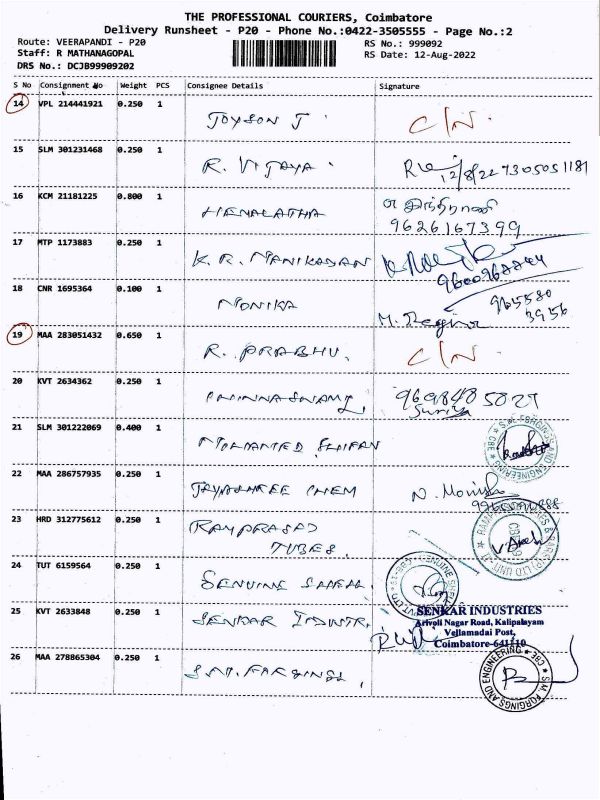 THE PROFESSIONAL COURIERS, Coimbatore
Delivery Runsheet - P20 - Phone No.:0422-3505555 - Page No.:2
Route: VEERAPANDI - P20
RS No.: 999092
Staff: R MATHANAGOPAL
RS Date: 12-Aug-2022
DRS No.: DCJB99909202
S No Consignment No Weight PCS Consignee Details Signature
14 VPL 214441921 0.250 1 JOYSON J C/N.
15 SLM 301231468 0.250 1 R. VIJAYA 12/8/22 7305051181
16 KCM 21181225 0.800 1 HEMALATHA
9626167399
17 MTP 1173883 0.250 1 K. R. MANIKADAN
18 CNR 1695364 0.100 1 MONIKA
19 MAA 283051432 0.650 1 R. PRABHU. C/N.
20 KVT 2634362 0.250 1 CHINNASWAMY
Suriya
21 SLM 301222069 0.400 1
22 MAA 286757935 0.250 1 JAYASHREE CHEM
23 HRD 312775612 0.250 1 RAMPRASAD
TUBES.
24 TUT 6159564 0.250 1 GENUINE
25 KVT 2633848 0.250 1 SENKAR
SENKAR INDUSTRIES
Arivoli Nagar Road, Kalipalayam
Vellamadai Post,
Coimbatore-641110
26 MAA 278865304 0.250 1 S.M. FORGINGS
S.M. FORGINGS AND ENGINEERING CBE